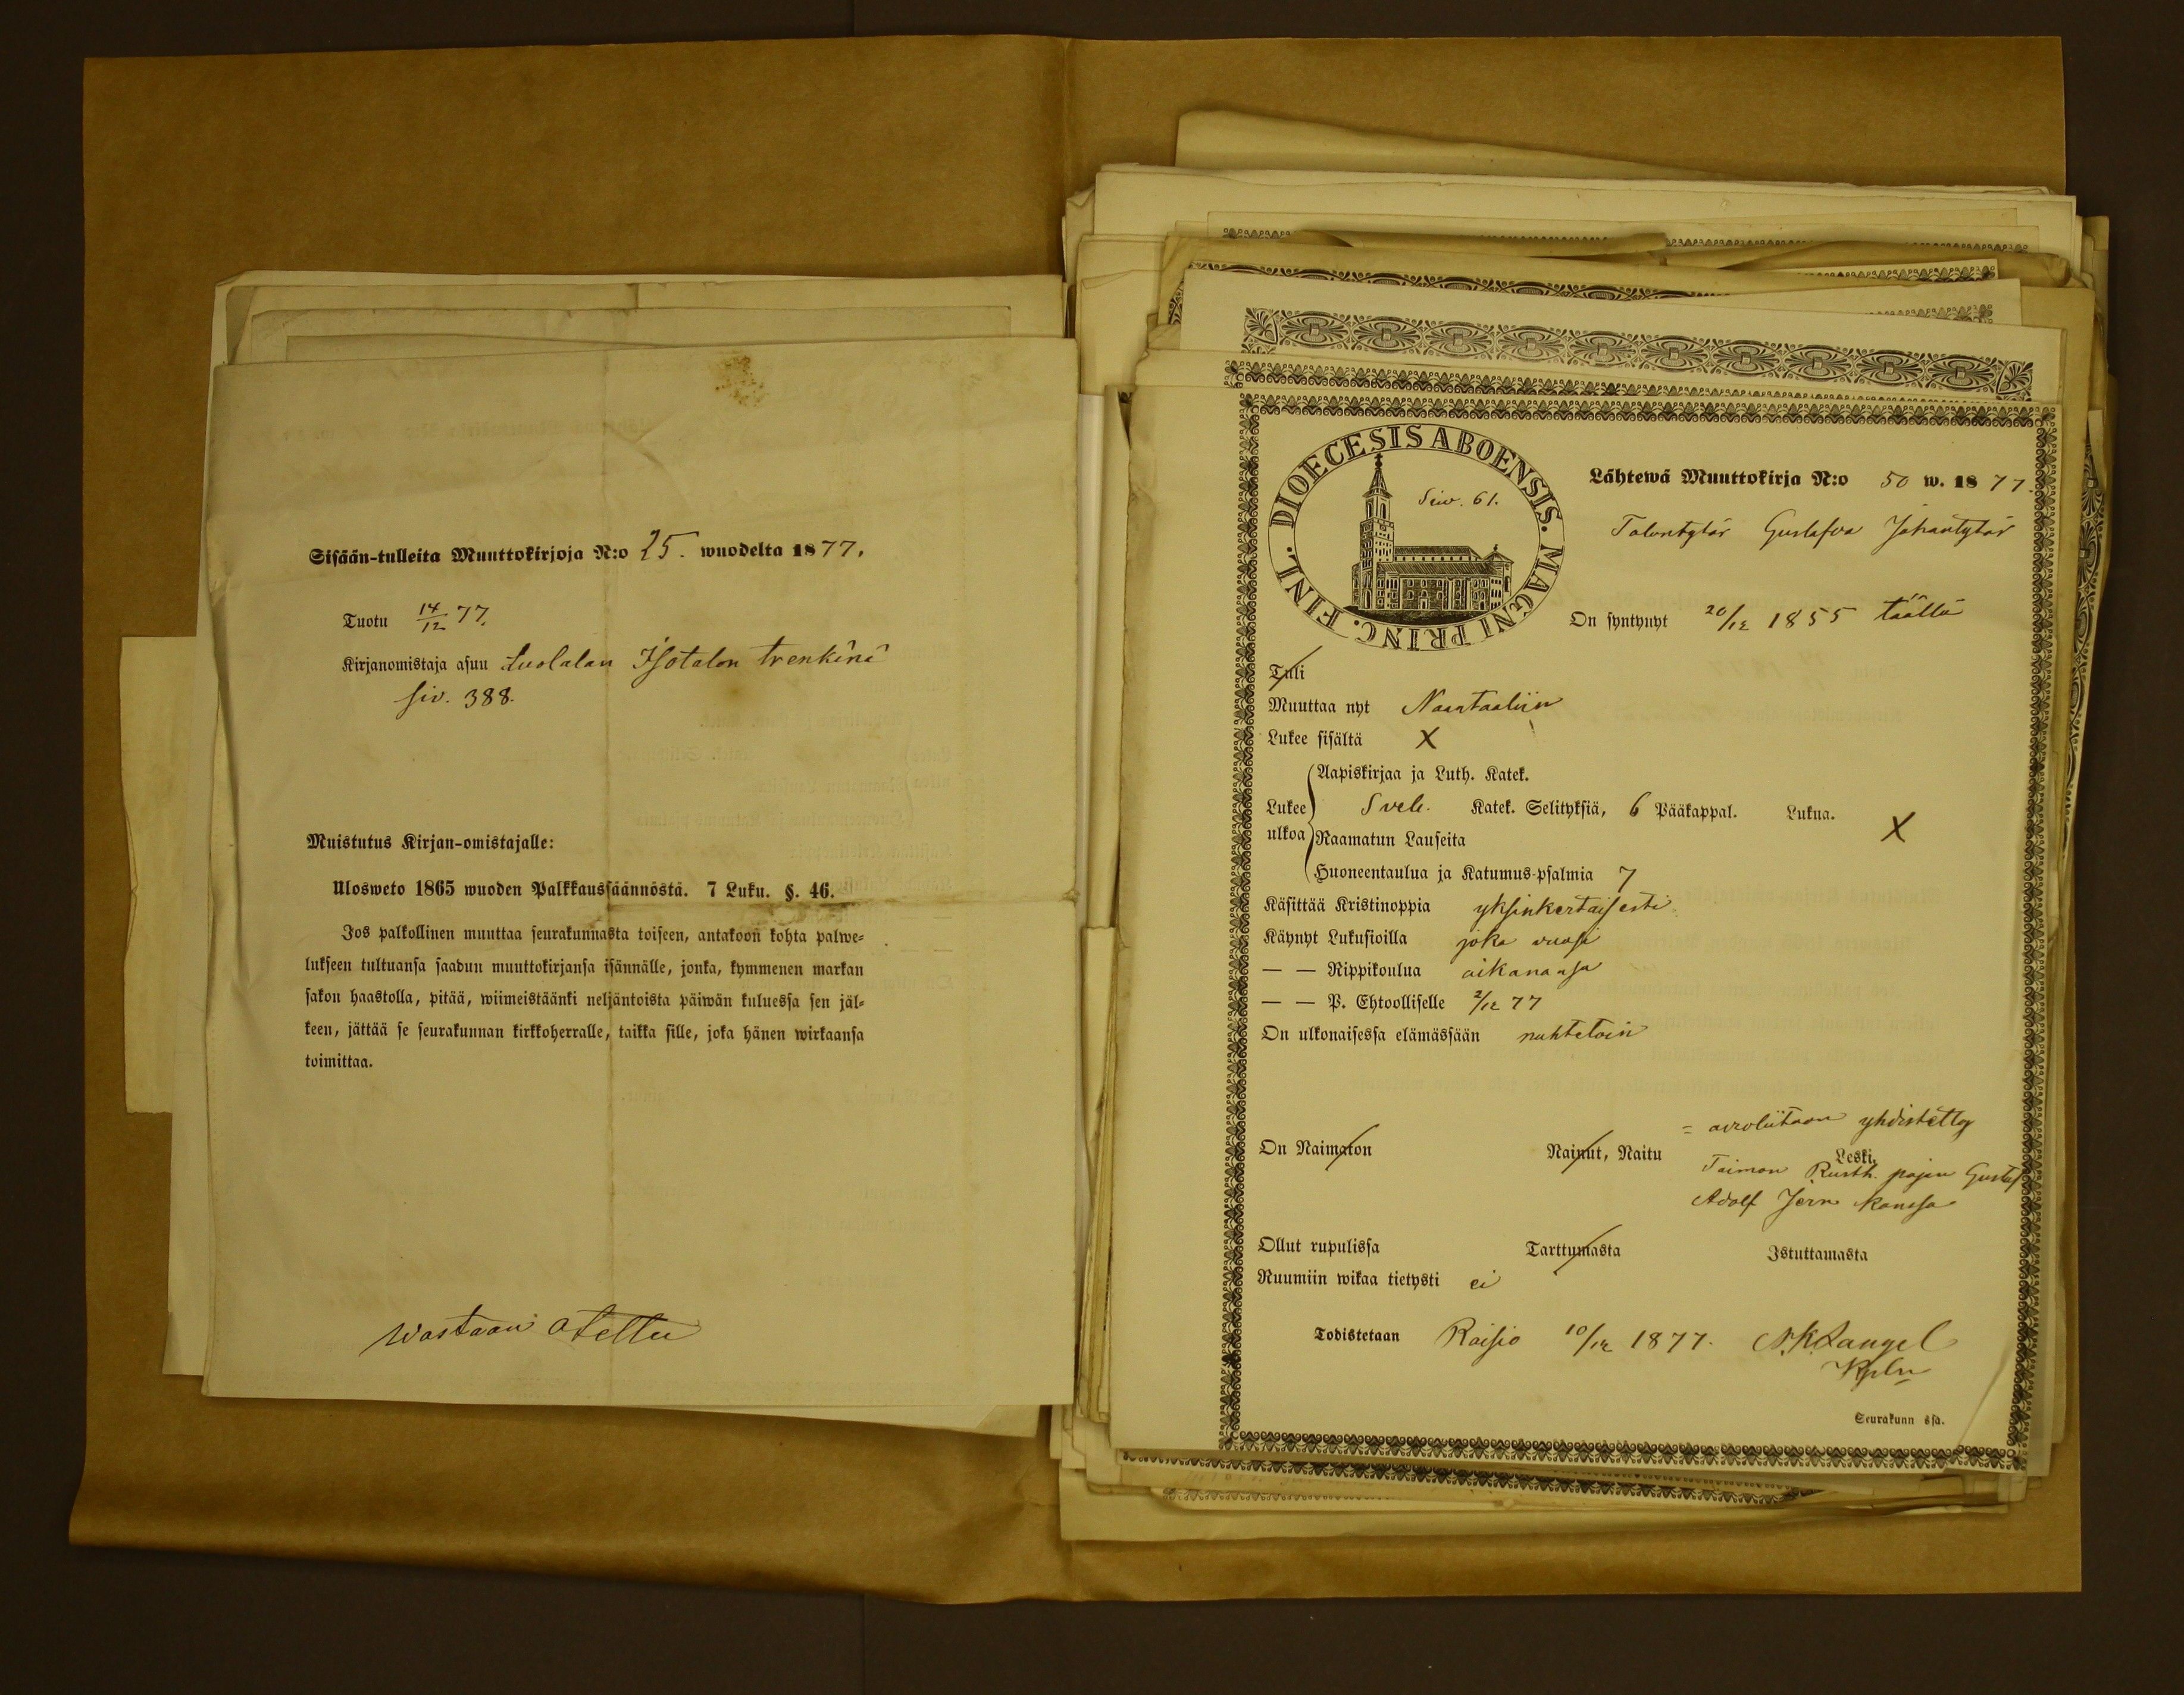 Sisään-tulleita Muuttokirjoja N:o 25. wuodelta 1877.
Tuotu 14/12 77.
Kirjanomistaja asuu Luolalan Isotalon trenkinä
siv. 388.
Muistutus Kirjan-omistajalle:
Ulosweto 1865 wuoden Palkkaussäännöstä. 7 Luku. §. 46.
Jos palkollinen muuttaa seurakunnasta toiseen, antakoon kohta palwe=
lukseen tultuansa saadun muuttokirjansa isännälle, jonka, kymmenen markan
sakon haastolla, pitää, wiimeistäänki neljäntoista päiwän kuluessa sen jäl=
keen, jättää se seurakunnan kirkkoherralle, taikka sille, joka hänen wirkaansa
toimittaa.
Wastaan otettu
DIOECESIS ABOENSIS. MAGNI PRINC. FINL.
Siw. 61.
Lähtewä Muuttokirja N:o 50 w. 1877.
Talontytär Gustafva Juhantytär
On syntynyt 20/12 1855 täällä
Tuli
Muuttaa nyt Naantaaliin
Lukee sisältä X
Lukee ulkoa
Aapiskirjaa ja Luth. Katek.
Sveb. Katek. Selityksiä, 6 Pääkappal. Lukua. X
Raamatun Lauseita
Huoneentaulua ja Katumus-psalmia 7
Käsittää Kristinoppia yksinkertaisesti
Käynyt Lukusioilla joka vuosi
— — Rippikoulua aikanansa
— — P. Ehtoolliselle 2/12 77
On ulkonaisessa elämässään nuhtetoin
= avioliitoon yhdistetty
On Naimaton Nainut, Naitu Leski,
Taimon Rusth. pojan Gustaf
Adolf Jern kanssa
Ollut rupulissa Tarttumasta Istuttamasta
Ruumiin wikaa tietysti ei
Todistetaan Raisio 10/12 1877. N.K. Langel
Kpln
Seurakunn ssa.